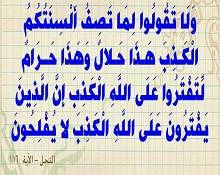 وَلَا تَقُولُوا لِمَا تَصِفُ أَلْسِنَتُكُمُ
الْكَذِبَ هَـذَا حَلَالٌ وَهَـذَا حَرَامٌ
لِّتَفْتَرُوا عَلَى اللَّهِ الْكَذِبَ إِنَّ الَّذِينَ
يَفْتَرُونَ عَلَى اللَّهِ الْكَذِبَ لَا يُفْلِحُونَ
النحل - الآية ١١٦